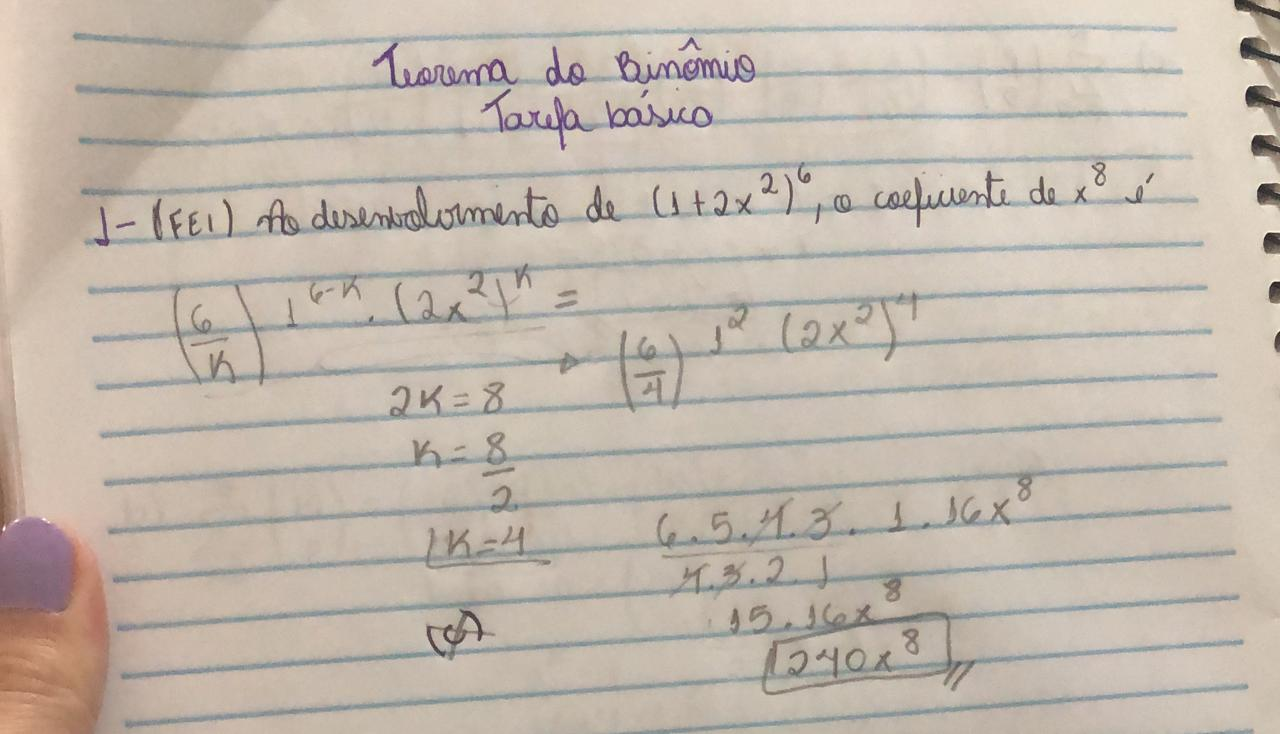 Teorema do Binômio
Tarefa básico
1- (FEI) No desenvolvimento de (1+2x²)⁶, o coeficiente de x⁸ é
(6/K) 1⁶⁻ᴷ . (2x²)ᴷ =
(6/4) 1² (2x²)⁴
2K = 8
K = 8/2
K=4
6.5.4.3 . 1 . 16x⁸
4.3.2.1
15.16x⁸
240x⁸